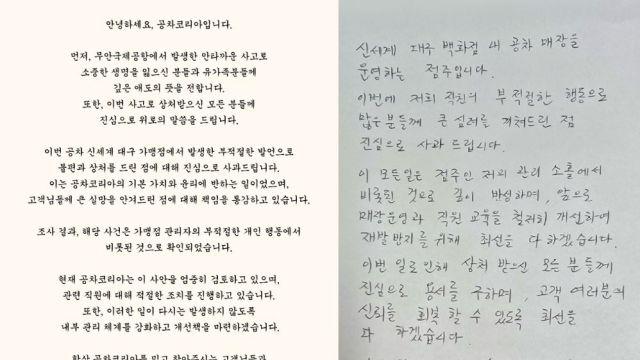 안녕하세요, 공차코리아입니다.
먼저, 무안국제공항에서 발생한 안타까운 사고로
소중한 생명을 잃으신 분들과 유가족분들께
깊은 애도의 뜻을 전합니다.
또한, 이번 사고로 상처받으신 모든 분들께
진심으로 위로의 말씀을 드립니다.
이번 공차 신세계 대구 가맹점에서 발생한 부적절한 발언으로
불편과 상처를 드린 점에 대해 진심으로 사과드립니다.
이는 공차코리아의 기본 가치와 윤리에 반하는 일이었으며,
고객님들께 큰 실망을 안겨드린 점에 대해 책임을 통감하고 있습니다.
조사 결과, 해당 사건은 가맹점 관리자의 부적절한 개인 행동에서
비롯된 것으로 확인되었습니다.
현재 공차코리아는 이 사안을 엄중히 검토하고 있으며,
관련 직원에 대해 적절한 조치를 진행하고 있습니다.
또한, 이러한 일이 다시는 발생하지 않도록
내부 관리 체계를 강화하고 개선책을 마련하겠습니다.
항상 공차코리아를 믿고 찾아주시는 고객님들과
신세계 대구 백화점 내 공차 매장을
운영하는 점주입니다.
이번에 저희 직원의 부적절한 행동으로
많은 분들께 큰 심려를 끼쳐드린 점
진심으로 사과 드립니다.
이 모든일은 점주인 저의 관리 소홀에서
비롯된 것으로 깊이 반성하며, 앞으로
매장운영과 직원 교육을 철저히 개선하여
재발방지를 위해 최선을 다하겠습니다.
이번 일로 인해 상처 받으신 모든 분들께
진심으로 용서를 구하며, 고객 여러분의
신뢰를 회복 할 수 있도록 최선을
다 하겠습니다.